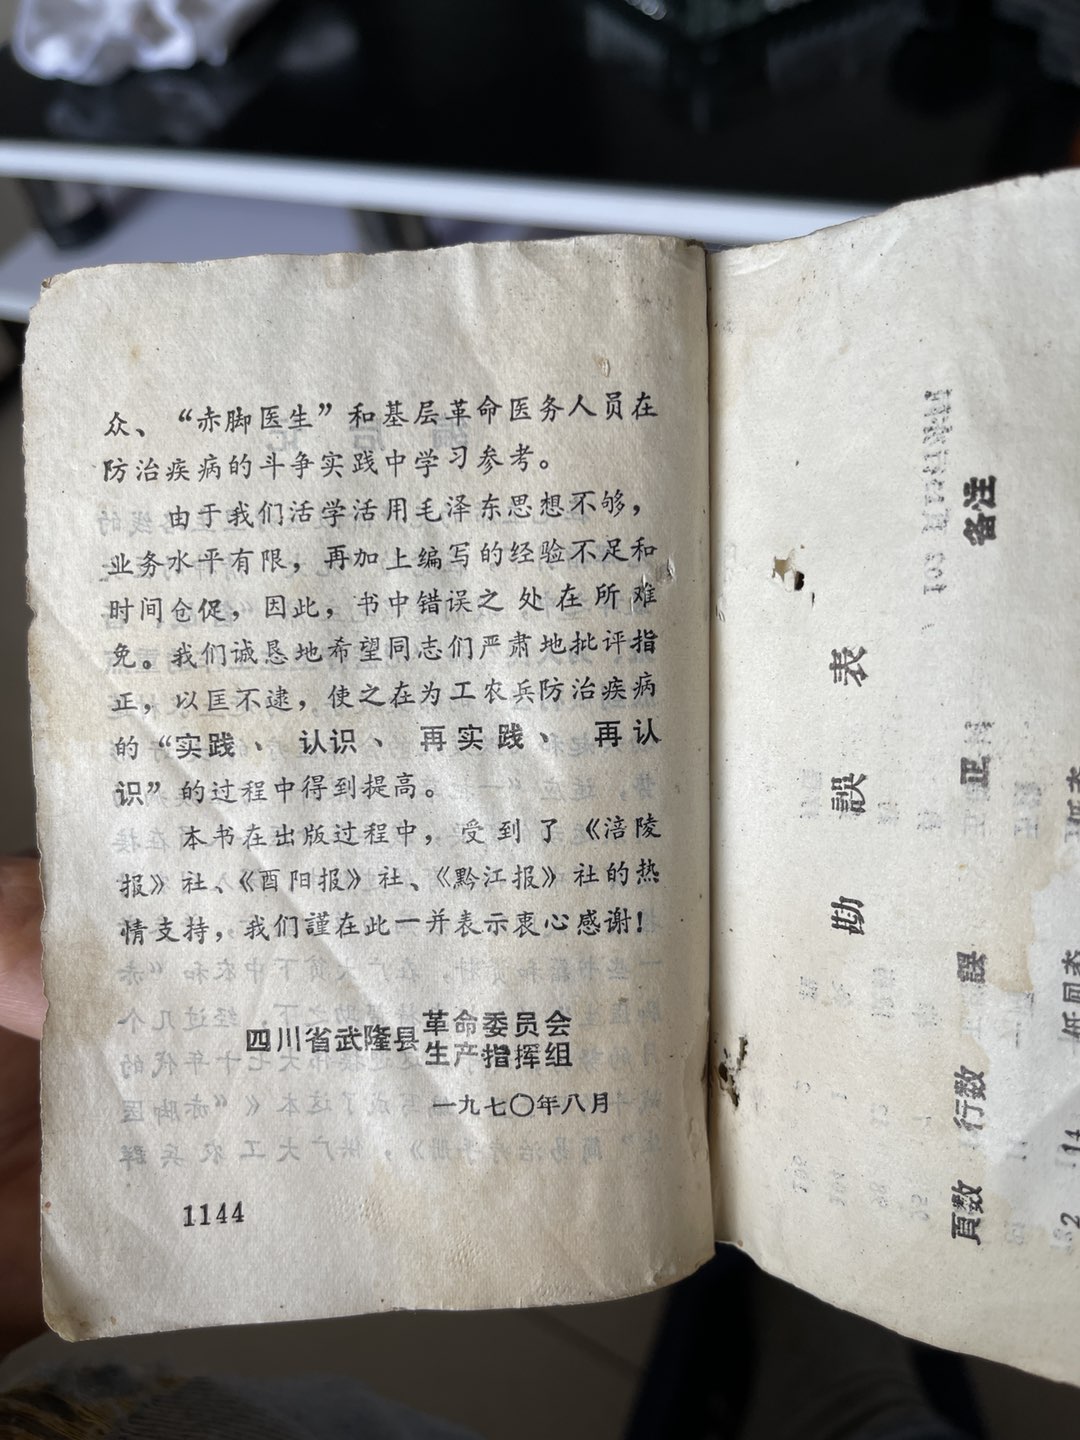 众、“赤脚医生”和基层革命医务人员在
防治疾病的斗争实践中学习参考。
由于我们活学活用毛泽东思想不够，
业务水平有限，再加上编写的经验不足和
时间仓促，因此，书中错误之处在所难
免。我们诚恳地希望同志们严肃地批评指
正，以匡不逮，使之在为工农兵防治疾病
的“实践、认识、再实践、再认
识”的过程中得到提高。
本书在出版过程中，受到了《涪陵
报》社、《酉阳报》社、《黔江报》社的热
情支持，我们謹在此一并表示衷心感谢！
四川省武隆县革命委员会
生产指挥组
一九七〇年八月
1144
勘誤表
頁数 行数 誤 正 备注
2 14